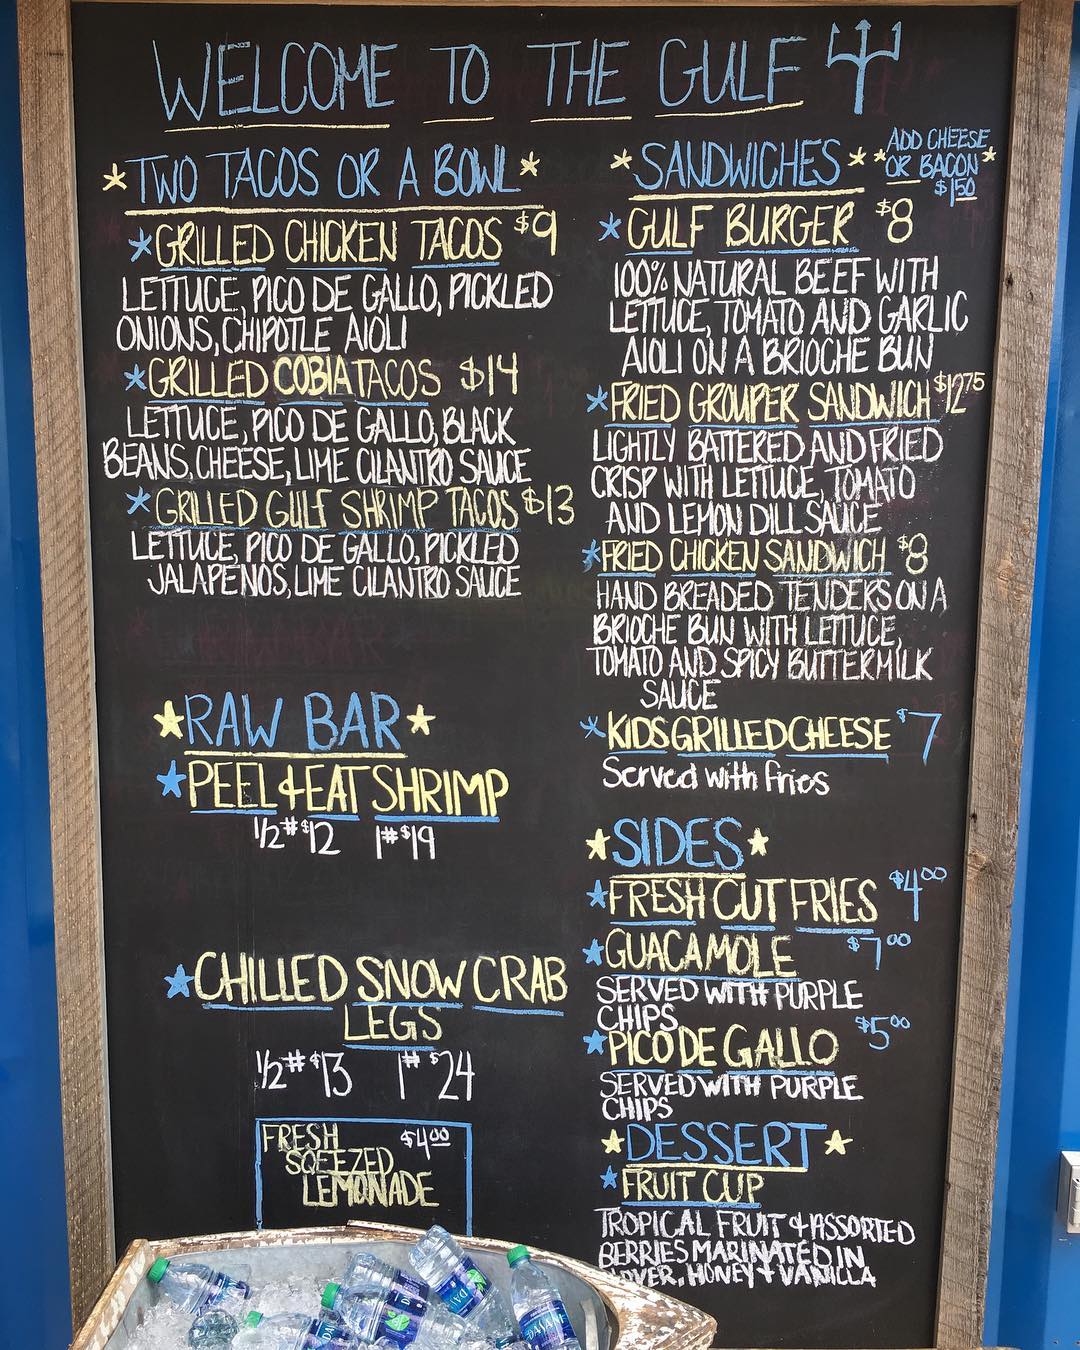 WELCOME TO THE GULF
*TWO TACOS OR A BOWL*
*GRILLED CHICKEN TACOS $9
LETTUCE, PICO DE GALLO, PICKLED
ONIONS, CHIPOTLE AIOLI
*GRILLED COBIA TACOS $14
LETTUCE, PICO DE GALLO, BLACK
BEANS, CHEESE, LIME CILANTRO SAUCE
*GRILLED GULF SHRIMP TACOS $13
LETTUCE, PICO DE GALLO, PICKLED
JALAPENOS, LIME CILANTRO SAUCE
*RAW BAR*
*PEEL & EAT SHRIMP
1/2# $12 1# $19
*CHILLED SNOW CRAB
LEGS
1/2# $13 1# $24
FRESH $4.00
SQEEZED
LEMONADE
*SANDWICHES*
*ADD CHEESE
OR BACON*
$1.50
*GULF BURGER $8
100% NATURAL BEEF WITH
LETTUCE, TOMATO AND GARLIC
AIOLI ON A BRIOCHE BUN
*FRIED GROUPER SANDWICH $12.75
LIGHTLY BATTERED AND FRIED
CRISP WITH LETTUCE, TOMATO
AND LEMON DILL SAUCE
*FRIED CHICKEN SANDWICH $8
HAND BREADED TENDERS ON A
BRIOCHE BUN WITH LETTUCE,
TOMATO AND SPICY BUTTERMILK
SAUCE
*KIDS GRILLED CHEESE $7
Served with fries
*SIDES*
*FRESH CUT FRIES $4.00
*GUACAMOLE $7.00
SERVED WITH PURPLE
CHIPS
*PICO DE GALLO $5.00
SERVED WITH PURPLE
CHIPS
*DESSERT*
*FRUIT CUP
TROPICAL FRUIT & ASSORTED
BERRIES MARINATED IN
HONEY + VANILLA